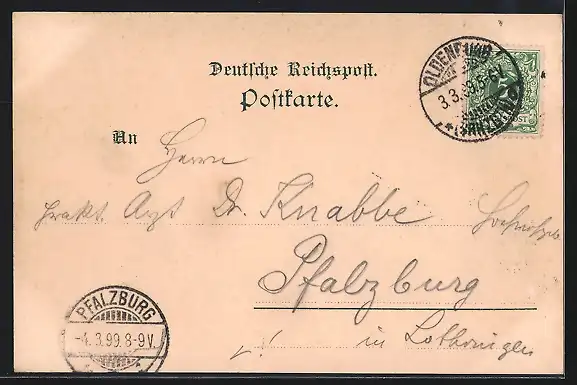 Deutsche Reichspost.
Postkarte.
OLDENBURG
3.3.99.5-6N.
* (GRHZGT.) *
An Herrn
prakt. Arzt Dr. Knabbe
Pfalzburg
in Lothringen
PFALZBURG
-4.3.99.8-9V.